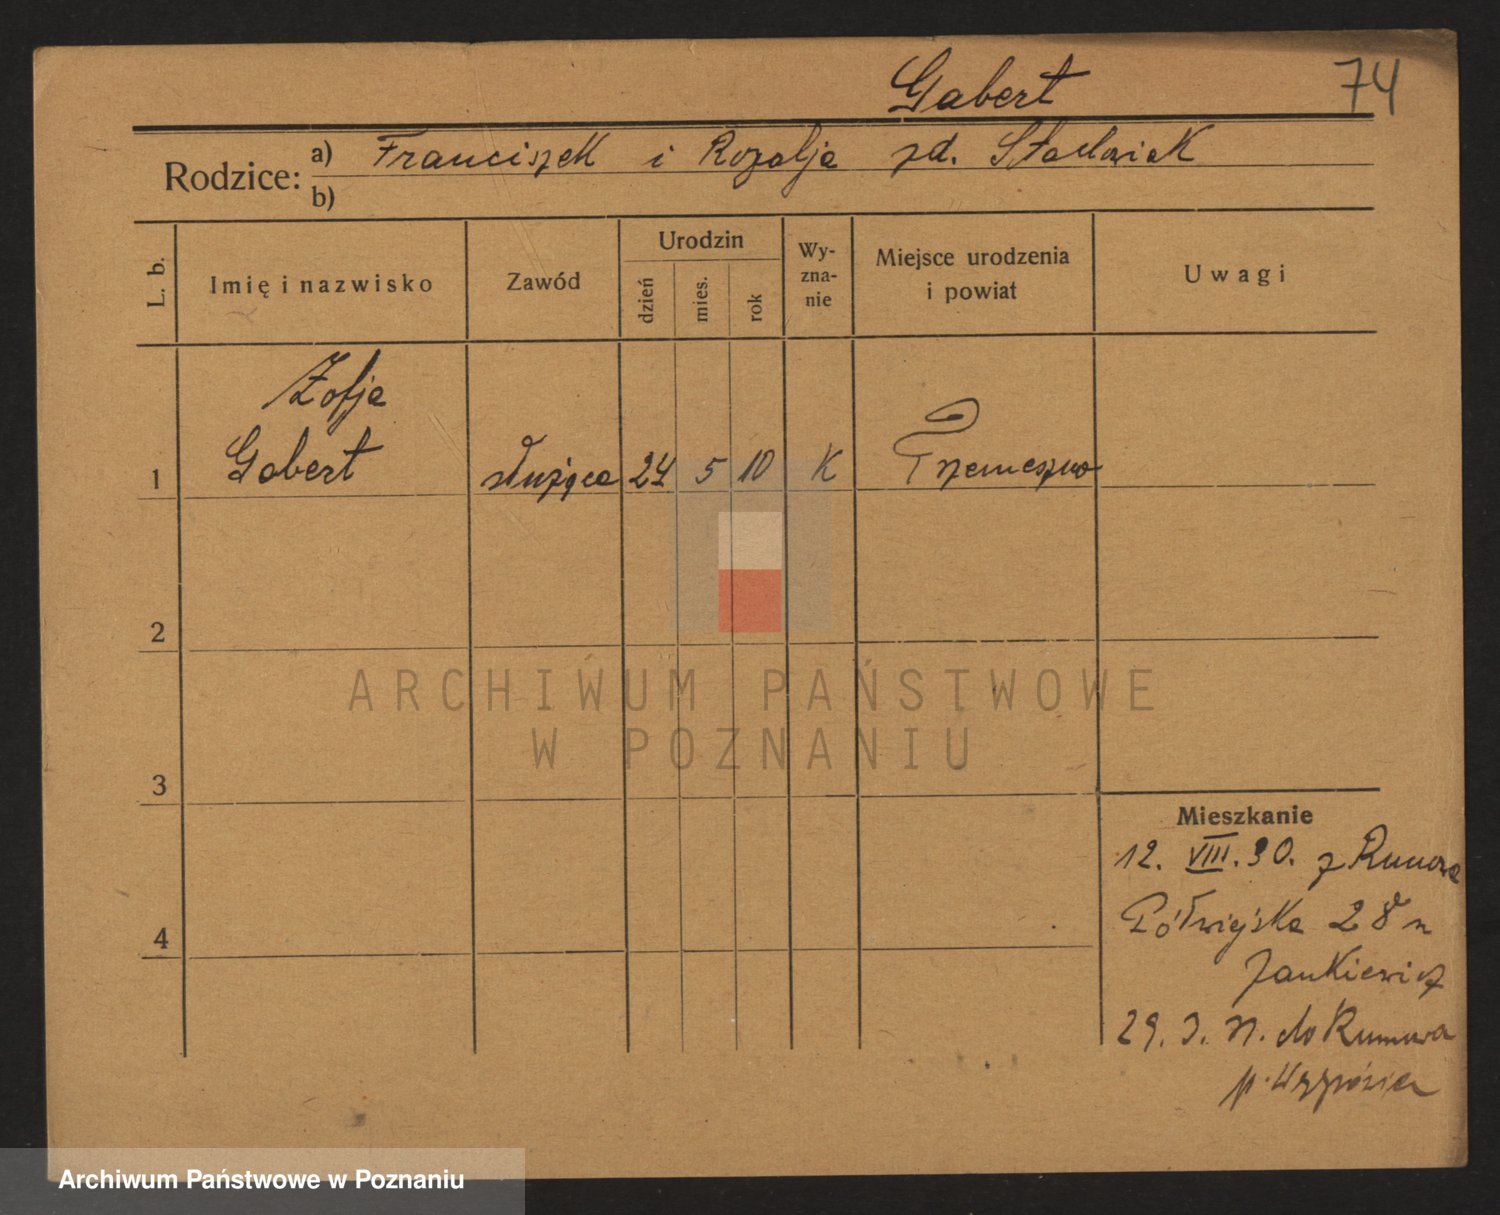 Gabert 74
Rodzice: a) Franciszek i Rozalja zd. Stachowiak
b)
L. b. Imię i nazwisko Zawód Urodzin dzień mies. rok Wyznanie Miejsce urodzenia i powiat Uwagi
Zofja
1 Gabert służąca 24 5 10 K Trzemeszno
2
3
4
Mieszkanie
12. VIII. 30. z
Półwiejska 28
Jankiewicz
29. do
ARCHIWUM PAŃSTWOWE
W POZNANIU
Archiwum Państwowe w Poznaniu